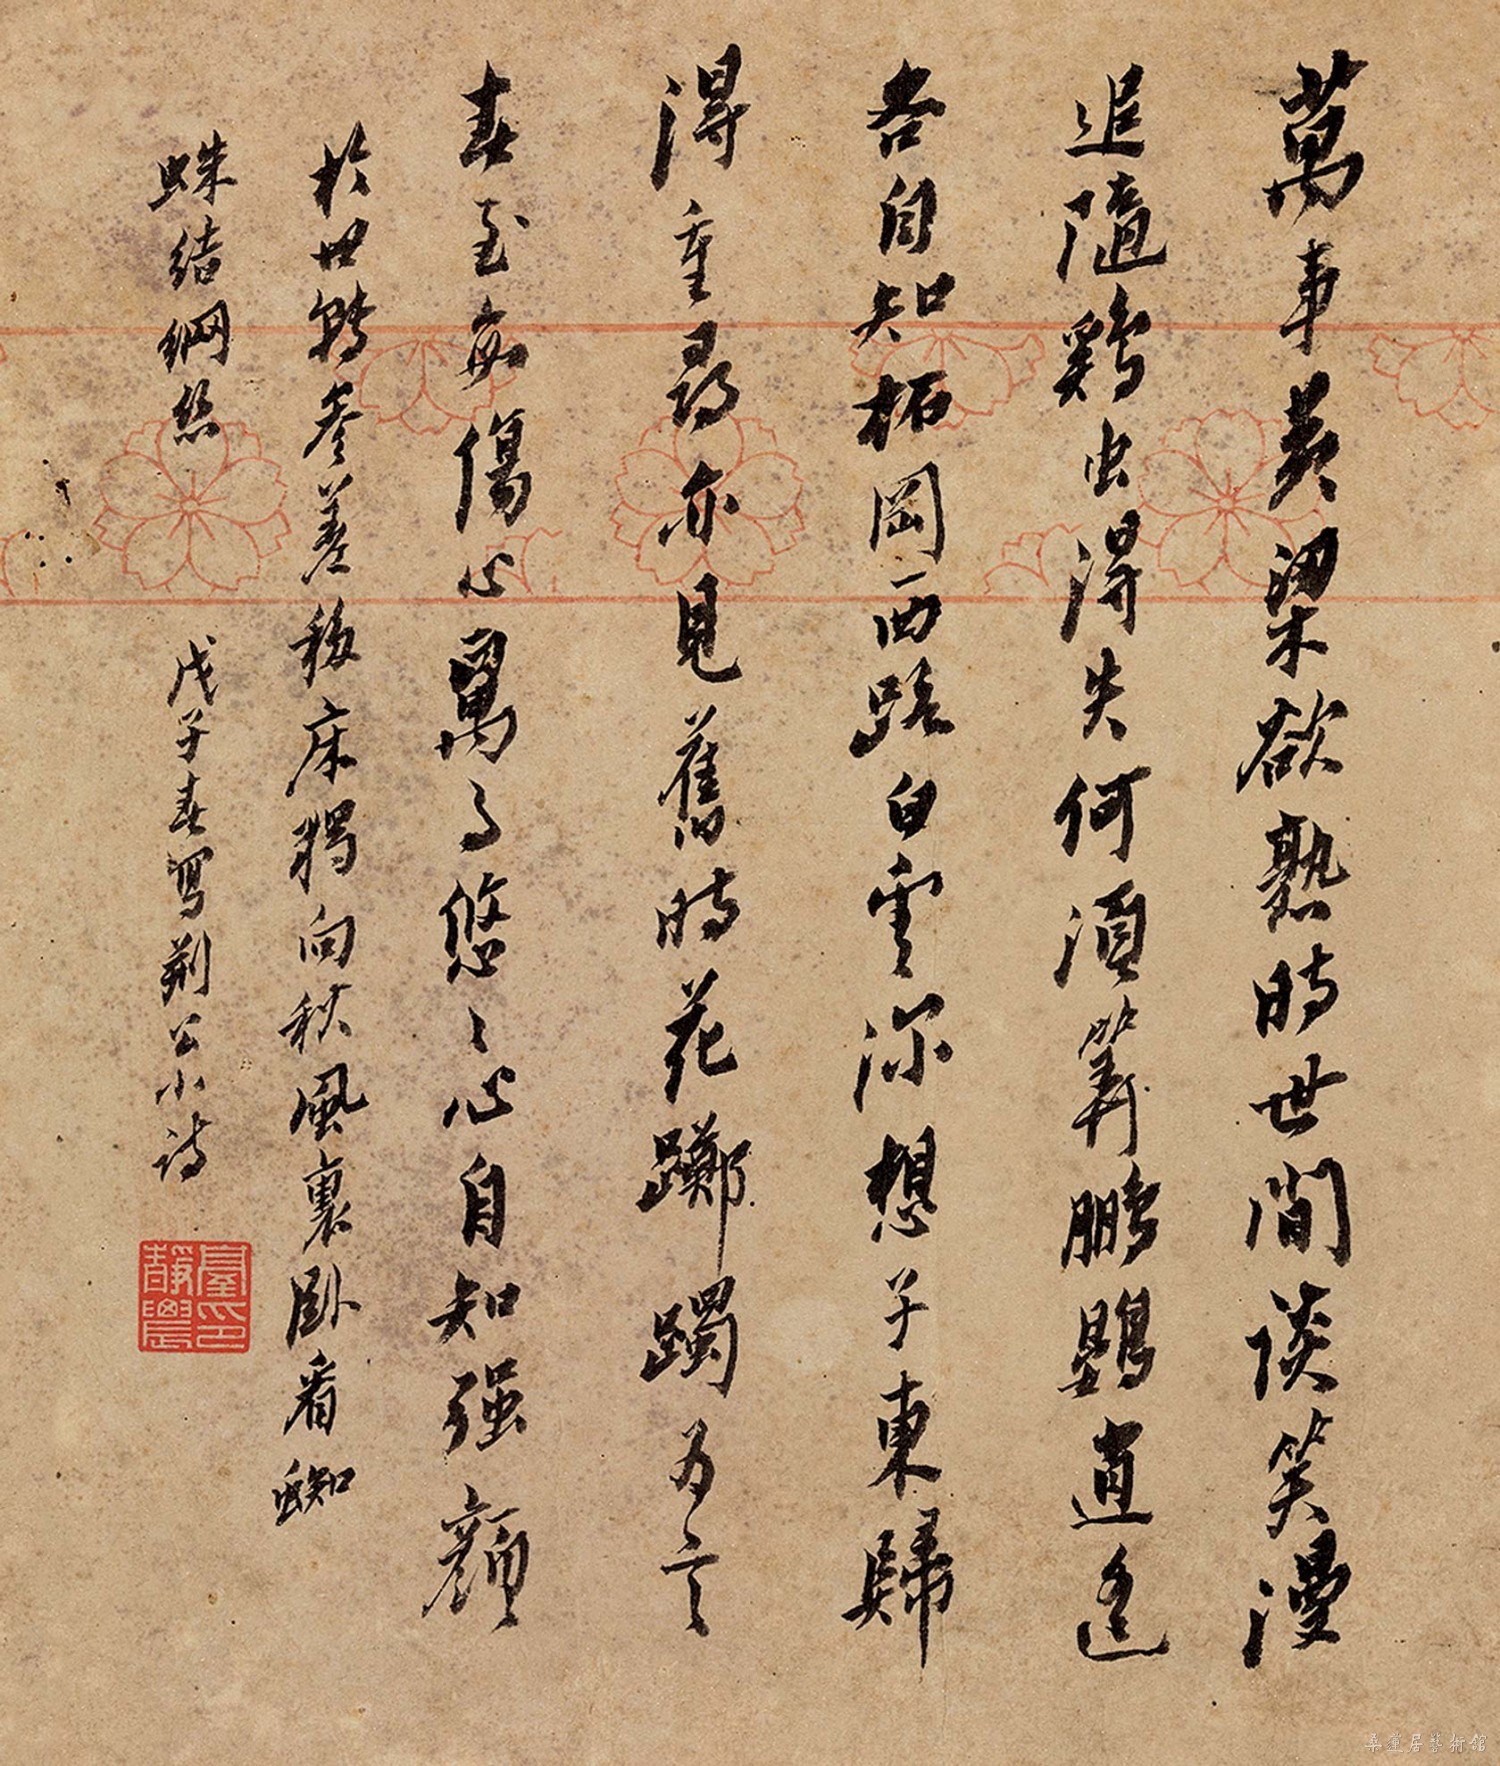 萬事黃粱欲熟時世間談笑漫
追隨鷄虫得失何須筭鵬鷃逍遙
各自知柘岡西路白雲深想子東歸
得重尋亦見舊時花躑躅為言
春至每傷心萬事悠〻心自知强顏
於世轉參差移床獨向秋風裏卧看蜘
蛛結網絲 戊子春寫荊公小詩
臺印靜農
桑蓮居藝術館